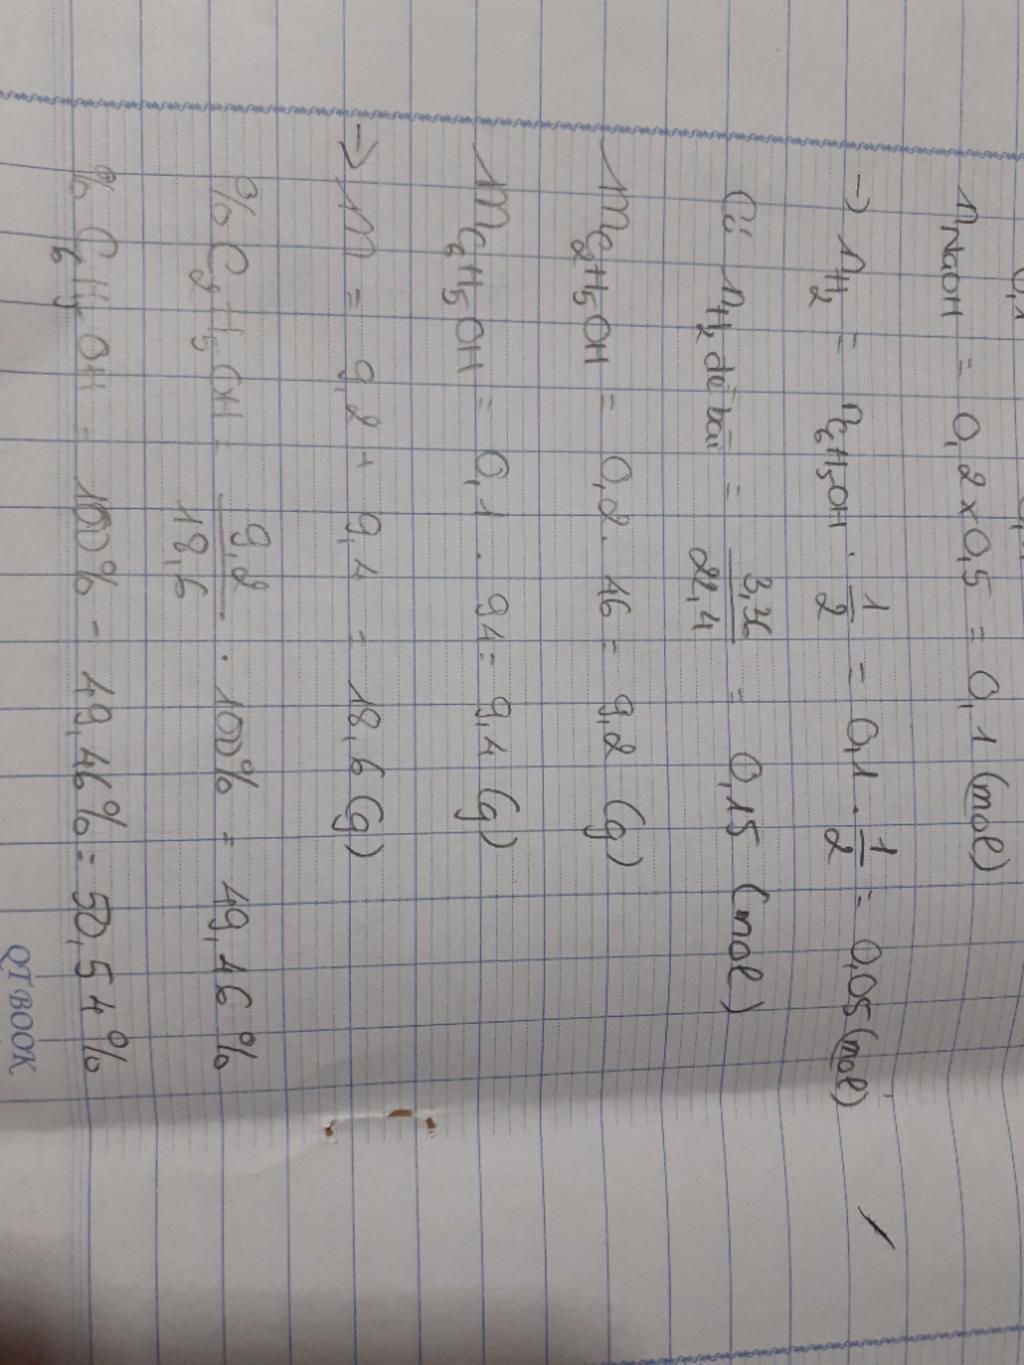 n NaOH = 0,2 x 0,5 = 0,1 (mol)
→ nH2 = nC6H5OH . 1/2 = 0,1 . 1/2 = 0,05 (mol)
Có nH2 đề bài = 3,36/22,4 = 0,15 (mol)
mC2H5OH = 0,2 . 46 = 9,2 (g)
mC6H5OH = 0,1 . 94 = 9,4 (g)
→ m = 9,2 + 9,4 = 18,6 (g)
% C2H5OH = 9,2/18,6 . 100% = 49,46%
% C6H5OH = 100% - 49,46% = 50,54%
QT BOOK